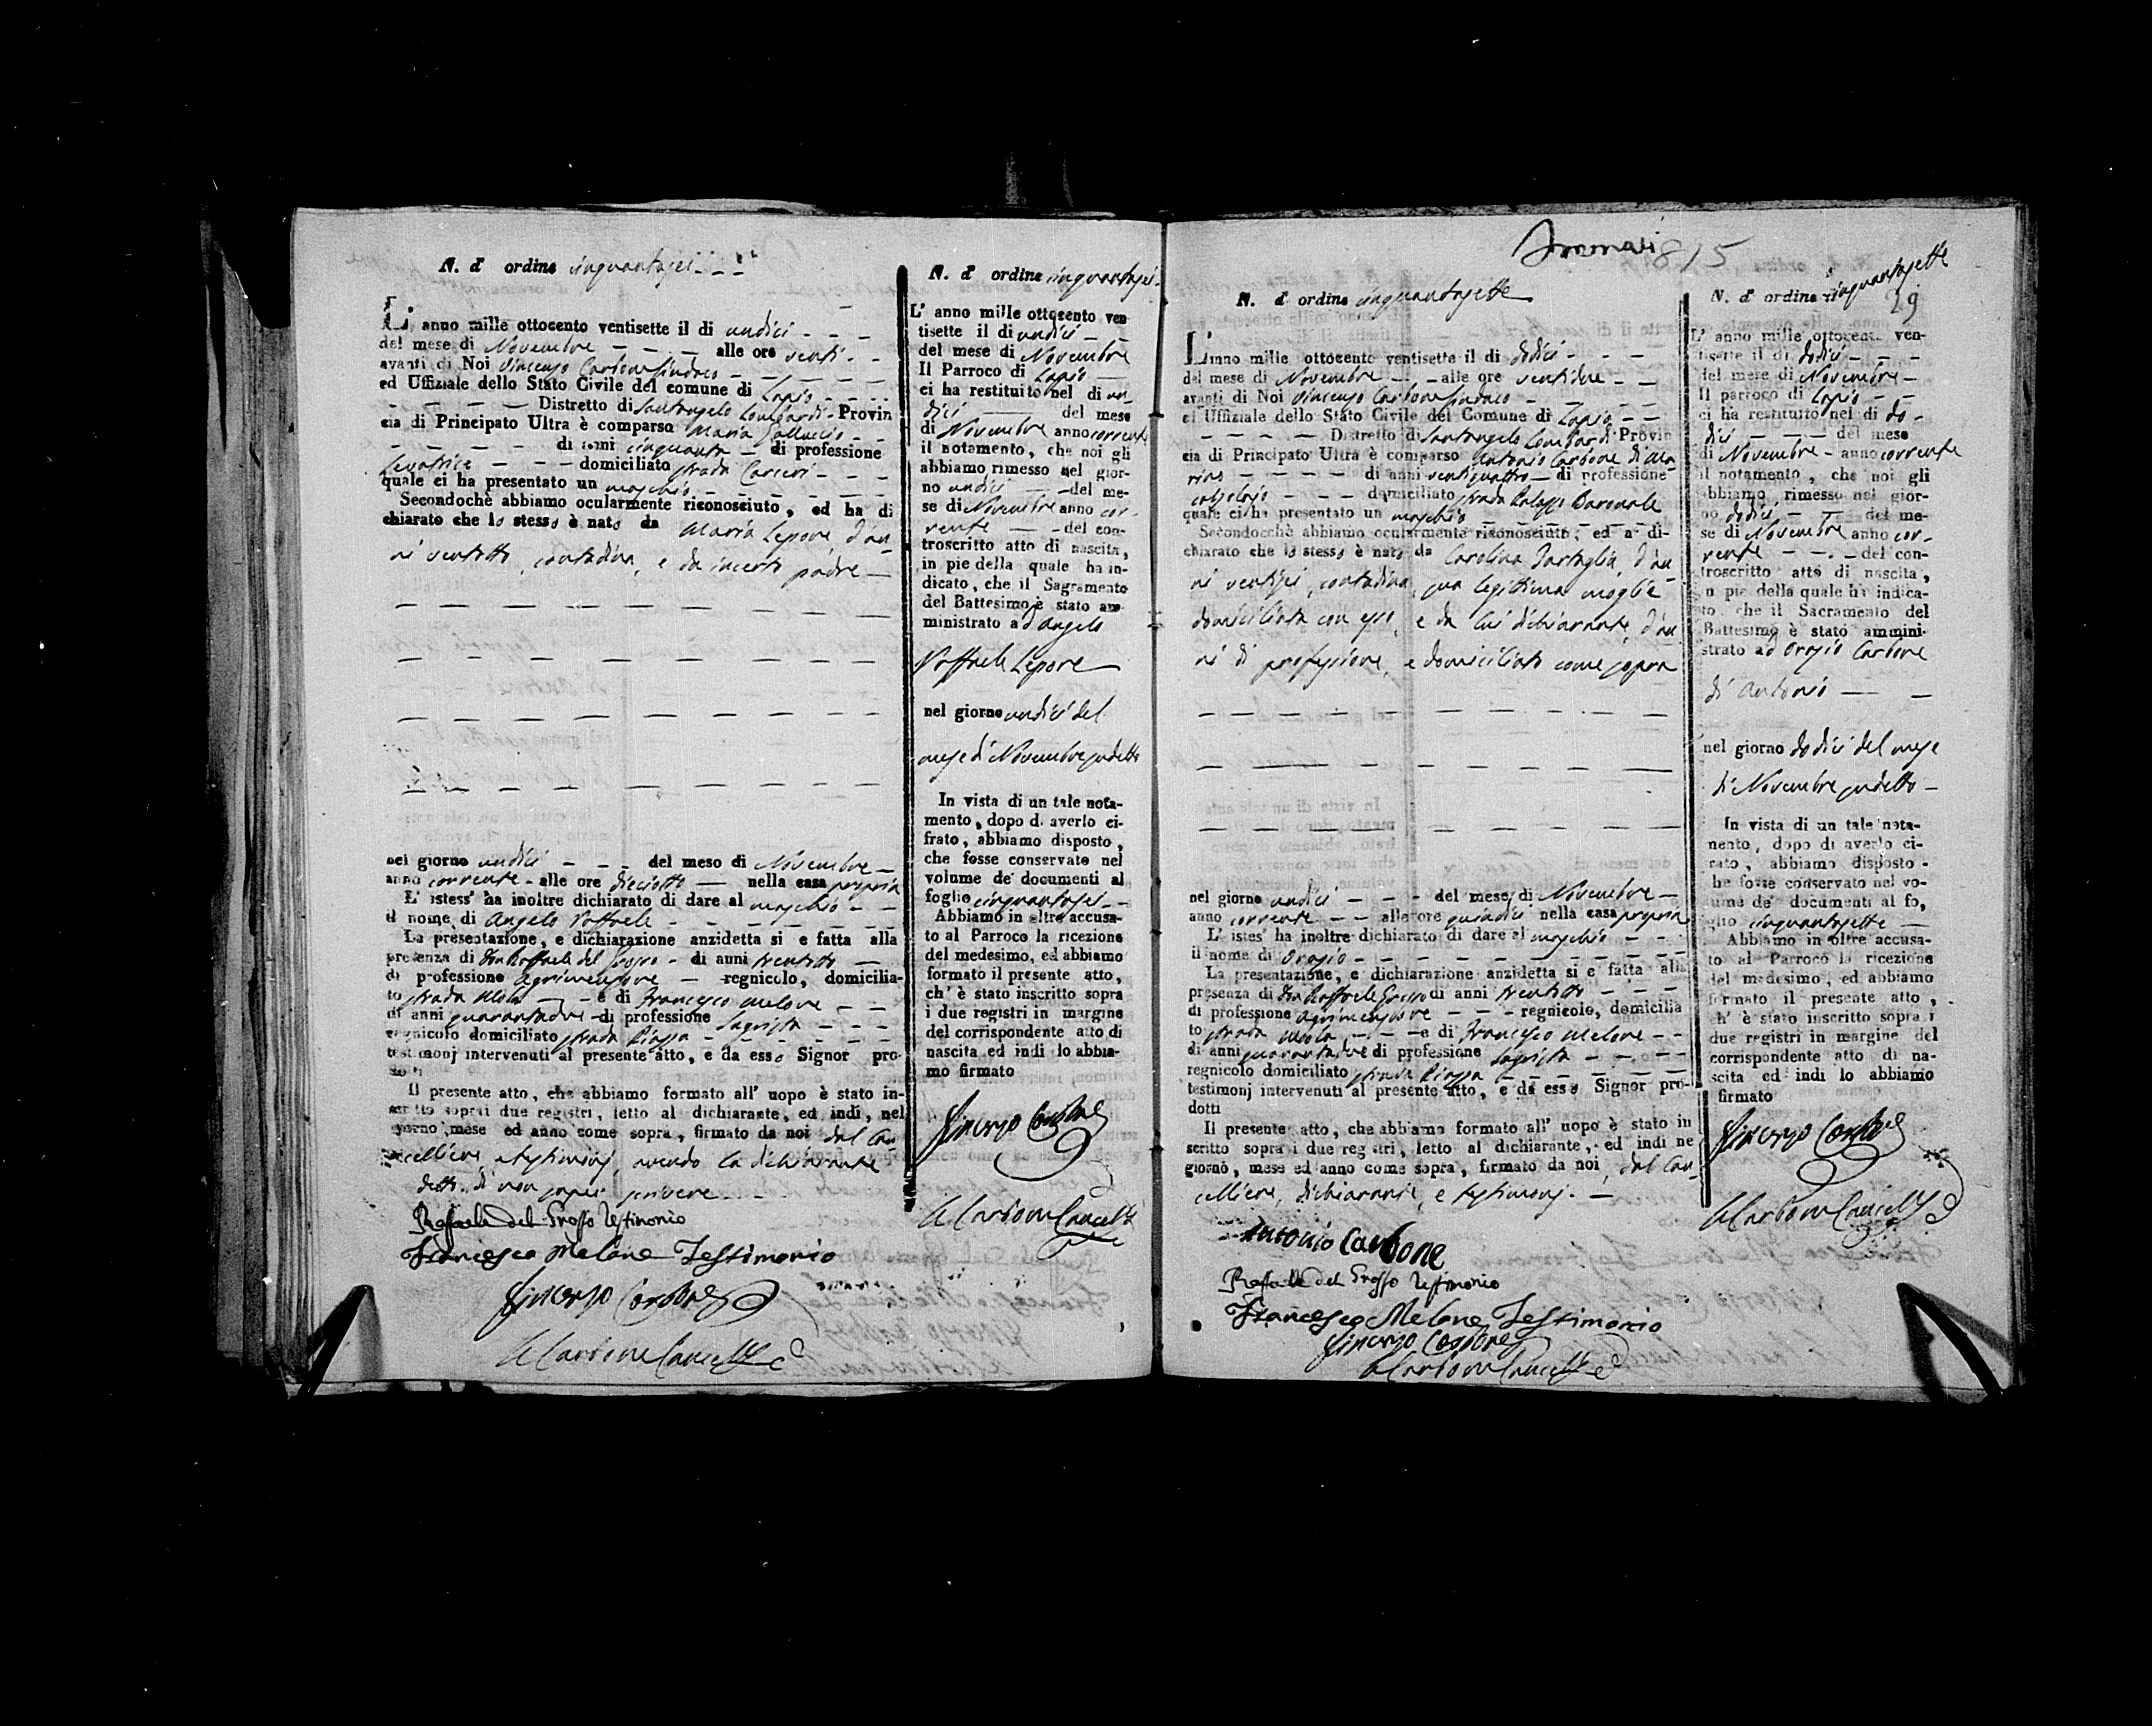 N. d' ordine cinquantasei
L' anno mille ottocento ventisette il di undici
del mese di Novembre alle ore venti
avanti di Noi Vincenzo Carbone Sindaco
ed Uffiziale dello Stato Civile del comune di Lapio
Distretto di Santangelo Lombardi Provin
cia di Principato Ultra è comparsa Maria Galluccio
di anni cinquanta di professione
Levatrice domiciliato strada Carceri
quale ci ha presentato un maschio
Secondochè abbiamo ocularmente riconosciuto, ed ha di
chiarato che lo stesso è nato da Maria Lepore d'an
ni ventotto, contadina, e da incerto padre
nel giorno undici del meso di Novembre
anno corrente alle ore dieciotto nella casa propria
L' istess' ha inoltre dichiarato di dare al maschio
il nome di Angelo Raffaele
La presentazione, e dichiarazione anzidetta si e fatta alla
presenza di Don Raffaele del Grosso di anni trentotto
di professione Agrimensore regnicolo, domicilia-
to strada Mola e di Francesco Melone
di anni quarantadue di professione Sagrista
regnicolo domiciliato strada Piazza
testimonj intervenuti al presente atto, e da esso Signor pro-
dotti
Il presente atto, che abbiamo formato all' uopo è stato in-
scritto sopra i due registri, letto al dichiarante, ed indi, nel
giorno, mese ed anno come sopra, firmato da noi dal Can
celliere, e testimonj, avendo la dichiarante
detto di non saper scrivere
Raffaele del Grosso Testimonio
Francesco Melone Testimonio
Vincenzo Carbone
Carbone Cancelle
N. d' ordine cinquantasei
L' anno mille ottocento ven
tisette il di undici
del mese di Novembre
Il Parroco di Lapio
ci ha restituito nel di un-
dici del mese
di Novembre anno corrente
il notamento, che noi gli
abbiamo rimesso nel gior-
no undici del me-
se di Novembre anno cor-
rente del con-
troscritto atto di nascita,
in pie della quale ha in-
dicato, che il Sagramento
del Battesimo è stato am-
ministrato a d'Angelo
Raffaele Lepore
nel giorno undici del
mese di Novembre sudetto
In vista di un tale nota-
mento, dopo di averlo ci-
frato, abbiamo disposto,
che fosse conservato nel
volume de' documenti al
foglio cinquantasei
Abbiamo in oltre accusa-
to al Parroco la ricezione
del medesimo, ed abbiamo
formato il presente atto,
ch' è stato inscritto sopra
i due registri in margine
del corrispondente atto di
nascita ed indi lo abbia-
mo firmato
Vincenzo Carbone
Carbone Cancelle
815
N. d' ordine cinquantasette
L'anno mille ottocento ventisette il di dodici
del mese di Novembre alle ore ventidue
avanti di Noi Vincenzo Carbone Sindaco
ed Uffiziale dello Stato Civile del Comune di Lapio
Distretto di Santangelo Lombardi Provin
cia di Principato Ultra è comparso Antonio Carbone di Ma
rino di anni ventiquattro di professione
calzolajo domiciliato strada Palazzo Baronale
quale ci ha presentato un maschio
Secondocchè abbiamo ocularmente riconosciuto, ed a di-
chiarato che lo stesso è nato da Carolina Tartaglia, d'an
ni ventisei, contadina, sua legittima moglie
domiciliata con esso, e da lui dichiarante, d'an
ni di professione, e domiciliato come sopra
nel giorno undici del mese di Novembre
anno corrente alle ore quindici nella casa propria
L' istes' ha inoltre dichiarato di dare al maschio
il nome di Orazio
La presentazione, e dichiarazione anzidetta si e fatta alla
presenza di Don Raffaele Grosso di anni trentotto
di professione agrimensore regnicolo, domicilia
to strada Mola e di Francesco Melone
di anni quarantadue di professione Sagrista
regnicolo domiciliato strada Piazza
testimonj intervenuti al presente atto, e da esso Signor pro-
dotti
Il presente atto, che abbiamo formato all' uopo è stato in
scritto sopra i due registri, letto al dichiarante, ed indi ne
giorno, mese ed anno come sopra, firmato da noi, dal Can
celliere, dichiarante, e testimonj.
Antonio Carbone
Raffaele del Grosso Testimonio
Francesco Melone Testimonio
Vincenzo Carbone
Carbone Cancelle
N. d' ordine cinquantasette
29
L' anno mille ottocento ven-
tisette il di dodici
del mese di Novembre
Il parroco di Lapio
ci ha restituito nel di do-
dici del mese
di Novembre anno corrente
il notamento, che noi gli
abbiamo rimesso nel gior-
no dodici del me-
se di Novembre anno cor-
rente del con-
troscritto atto di nascita,
in pie della quale ha indica-
to, che il Sacramento del
Battesimo è stato ammini-
strato ad Orazio Carbone
di Antonio
nel giorno dodici del mese
di Novembre sudetto
In vista di un tale nota-
mento, dopo di averlo ci-
frato, abbiamo disposto
che fosse conservato nel vo-
lume de' documenti al fo,
glio cinquantasette
Abbiamo in oltre accusa-
to al Parroco la ricezione
del medesimo, ed abbiamo
formato il presente atto,
ch' è stato inscritto sopra i
due registri in margine del
corrispondente atto di na-
scita ed indi lo abbiamo
firmato
Vincenzo Carbone
Carbone Cancelle